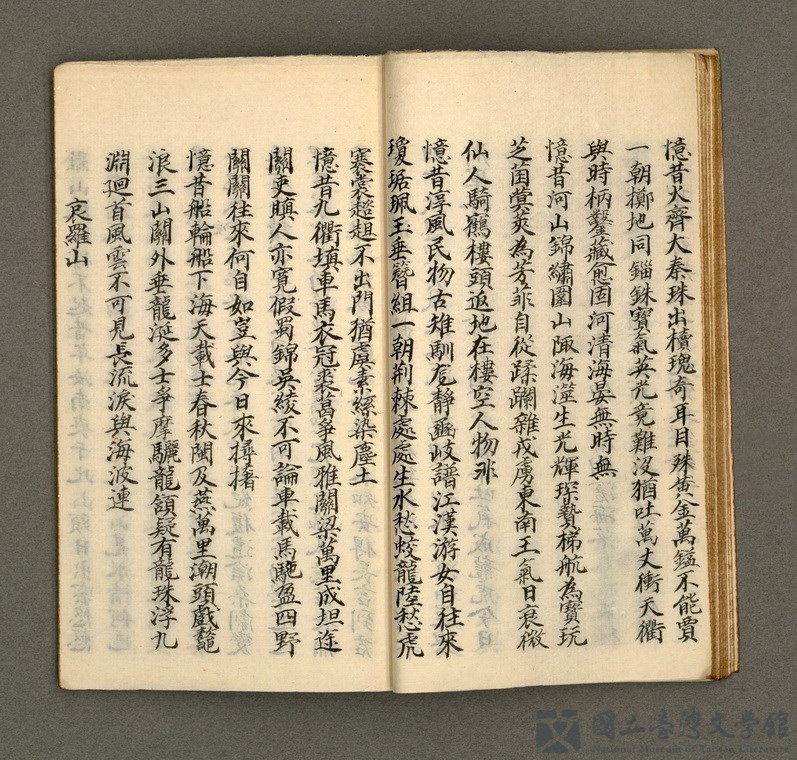 憶昔火齊大秦珠出櫝瑰奇耳目殊黃金萬鎰不能買
一朝擲地同錙銖寶氣英光竟難沒猶吐萬丈衝天衢
與時枘鑿藏愈固河清海晏無時無
憶昔河山錦繡圍山陬海澨生光輝琛贄梯航為寶玩
芝菌蓂莢為芳菲自從蹂躪雜戎虜東南王氣日衰微
仙人騎鶴樓頭返地在樓空人物非
憶昔淳風民物古雉馴尨靜豳岐譜江漢游女自往來
瓊琚珮玉垂簪組一朝荊棘處處生水愁蛟龍陸愁虎
褰裳趑趄不出門猶虞素絲染塵土
憶昔九衢填車馬衣冠裘萬爭風雅關梁萬里成坦途
關吏瞋人亦寬假蜀錦吳綾不可論車載馬馳盈四野
關關往來何自如豈與今日來撏撦
憶昔船輪船下海天載士春秋閩及燕萬里潮頭戲鼇
浪三山關外垂龍涎多士爭摩驪龍頷疑有龍珠浮九
淵迴首風雲不可見長流淚與海波連
哀羅山
國立臺灣文學館
National Museum of Taiwan Literature